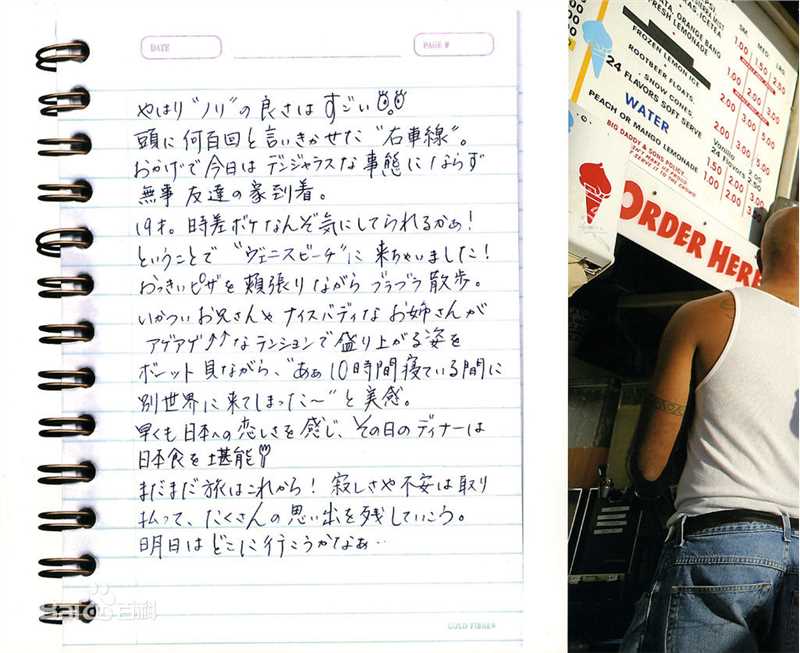 DATE
PAGE #
やはり"ノリ"の良さはすごい
頭に何百回と言いきかせた"右車線"。
おかげで今日はデンジャラスな事態にならず
無事友達の家到着。
19才。時差ボケなんぞ気にしてられるかぁ!
ということで"ヴェニスビーチ"に来ちゃいました!
おっきいピザを頬張りながらブラブラ散歩。
いかついお兄さんやナイスバディなお姉さんが
アゲアゲ↑↑なテンションで盛り上がる姿を
ボーット見ながら、"あぁ10時間寝ている間に
別世界に来てしまった〜"と実感。
早くも日本への恋しさを感じ、その日のディナーは
日本食を堪能
まだまだ旅はこれから!寂しさや不安は取り
払って、たくさんの思い出を残していこう。
明日はどこに行こうかなぁ…
GOLD FIBRE®
Baidu百科
ORANGE BANG
FRESH LEMONADE
FROZEN LEMON ICE
ROOTBEER FLOATS
SNOW CONES
24 FLAVORS SOFT SERVE
WATER
PEACH OR MANGO LEMONADE
BIG DADDY & SONS POLICY
SM MED LRG
1.00 1.50 2.50
Vanilla
24 Flavors
ORDER HERE